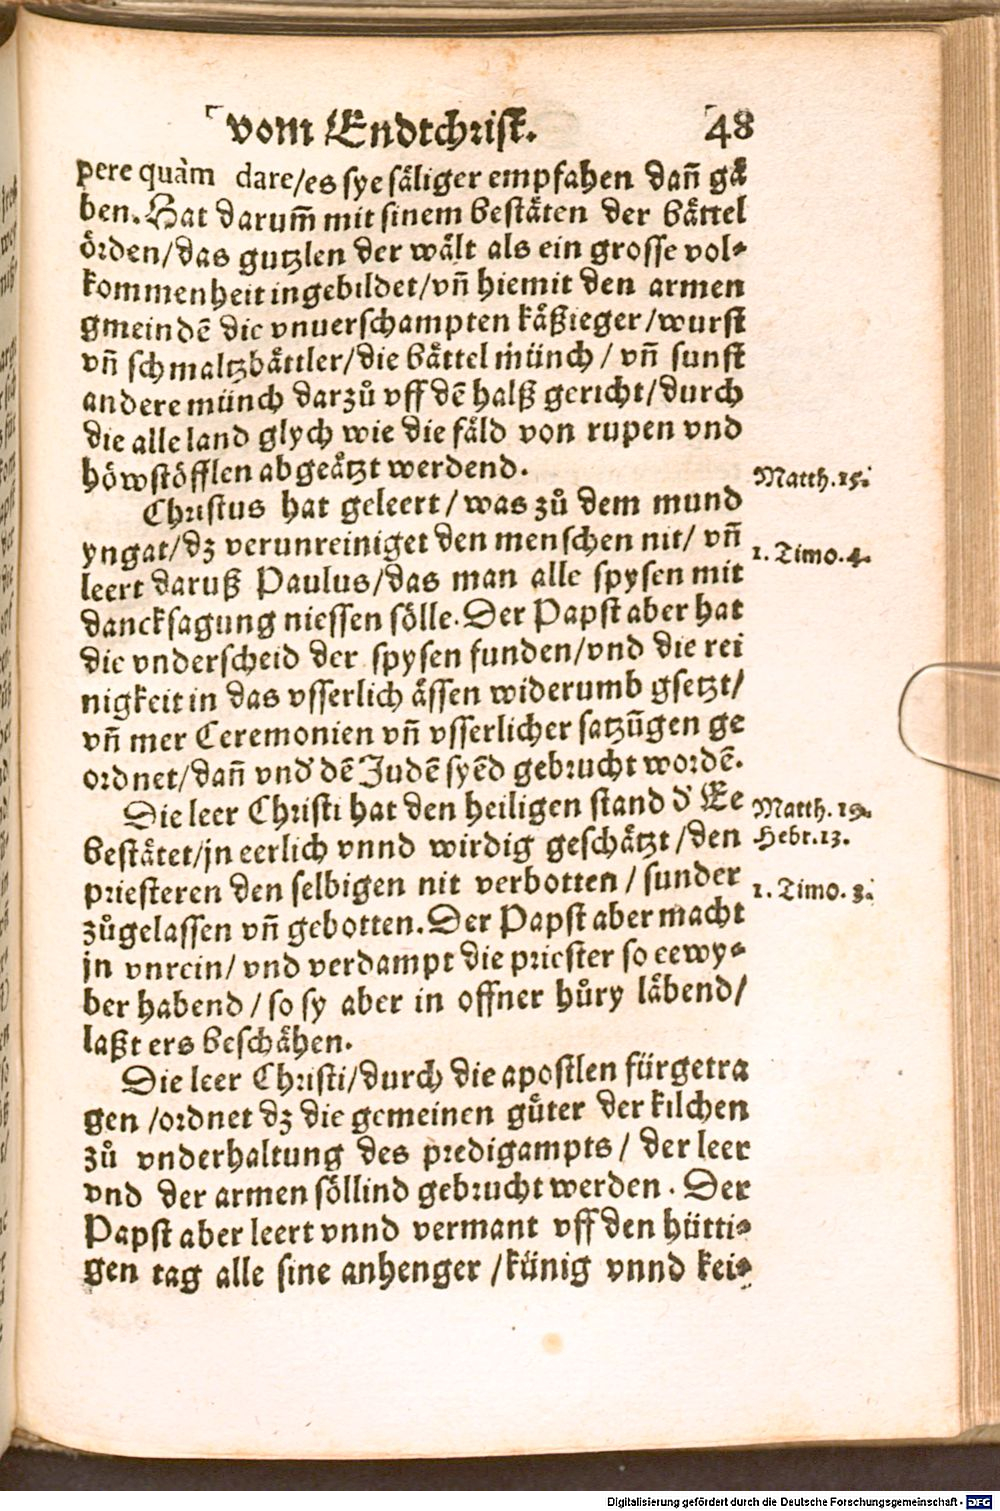 vom Endtchrist. 48
pere quàm dare/es sye säliger empfahen dañ gä
ben. Hat darum̃ mit sinem bestäten der bättel
örden/das gutzlen der wält als ein grosse vol⸗
kommenheit ingebildet/vñ hiemit den armen
gmeindẽ die vnuerschampten käßieger/wurst
vñ schmaltzbättler/die bättel münch/ vñ sunst
andere münch darzů vff dẽ halß gericht/durch
die alle land glych wie die fäld von rupen vnd
höwstöfflen abgeätzt werdend.
Christus hat geleert/ was zů dem mund
Matth.15.
yngat/dz verunreiniget den menschen nit/ vñ
1. Timo. 4.
leert daruß Paulus/das man alle spysen mit
dancksagung niessen sölle. Der Papst aber hat
die vnderscheid der spysen funden/vnd die rei
nigkeit in das vsserlich ässen widerumb gsetzt/
vñ mer Ceremonien vñ vsserlicher satzũgen ge
ordnet/dañ vnd̕ dẽ Judẽ syẽd gebrucht wordẽ.
Die leer Christi hat den heiligen stand d̕ Ee
Matth. 19.
bestätet/jn eerlich vnnd wirdig geschätzt/den
Hebr.13.
priesteren den selbigen nit verbotten/ sunder
1. Timo. 3.
zůgelassen vñ gebotten. Der Papst aber macht
jn vnrein/ vnd verdampt die priester so eewy⸗
ber habend/ so sy aber in offner hůry läbend/
laßt ers beschähen.
Die leer Christi/durch die apostlen fürgetra
gen/ordnet dz die gemeinen gůter der kilchen
zů vnderhaltung des predigampts/ der leer
vnd der armen söllind gebrucht werden. Der
Papst aber leert vnnd vermant vff den hütti⸗
gen tag alle sine anhenger/künig vnnd kei⸗
Digitalisierung gefördert durch die Deutsche Forschungsgemeinschaft - DFG